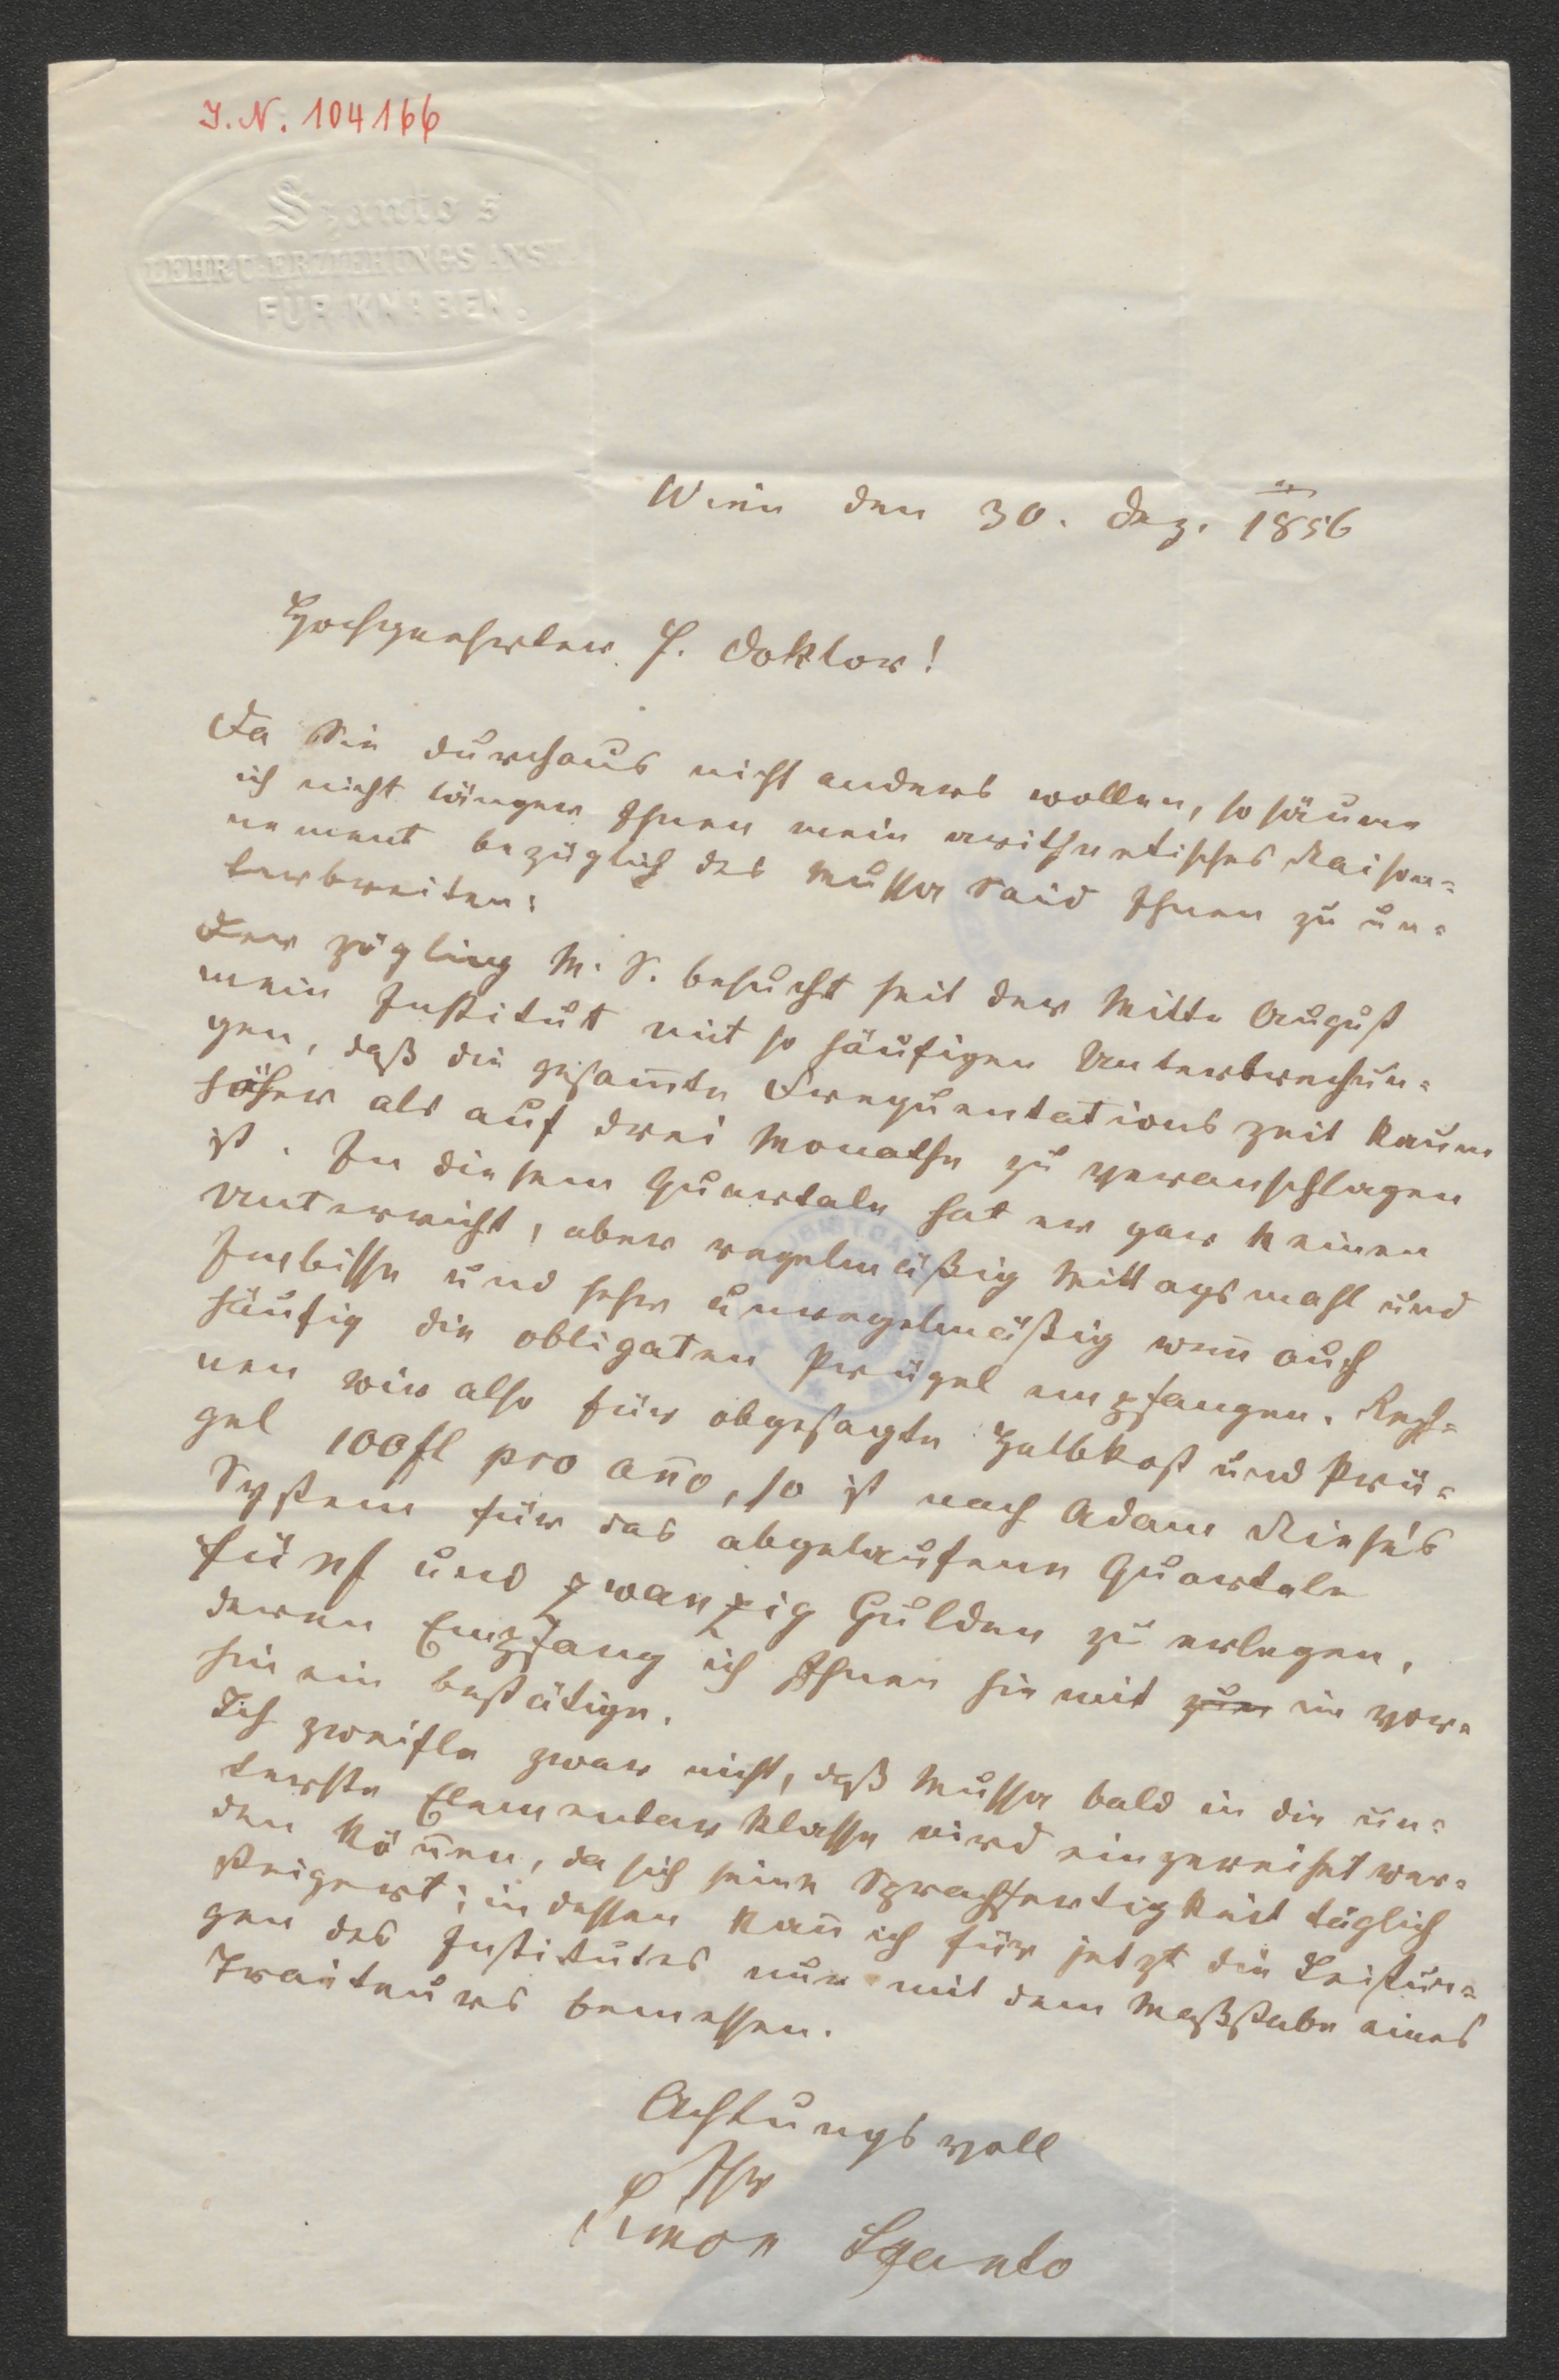 J. N. 104166
Szanto's
LEHR U. ERZIEHUNGS ANST.
FÜR KNABEN.
Wien den 30. Dez. 1856
Hochgeehrter H. Doktor!
Da Sie durchaus nicht anders wollen, so säume
ich nicht länger Ihnen mein arithmetisches Raison=
nement bezüglich des Mussa Said Ihnen zu un=
terbreiten:
Der Zögling M. S. besucht seit der Mitte August
mein Institut mit so häufigen Unterbrechun=
gen, daß die gesam̄te Frequentationszeit kaum
höher als auf drei Monathe zu veranschlagen
ist. In diesem Quartale hat er gar keinen
Unterricht, aber regelmäßig Mittagsmahl und
Imbisse und sehr unregelmäßig wen̄ auch
häufig die obligaten Prügel empfangen. Rech=
nen wir also für obgesagte Halbkost und Prü=
gel 100 fl pro an̄o, so ist nach Adam Riese's
System für das abgelaufene Quartale
fünf und zwanzig Gulden zu erlegen,
deren Empfang ich Ihnen hiemit zum im vor=
hinein bestätige.
Ich zweifle zwar nicht, daß Mussa bald in die un=
terste Elementarklasse wird eingereihet wer=
den kön̄en, da sich seine Sprachfertigkeit täglich
steigert; indessen kan̄ ich für jetzt die Leistun=
gen des Institutes nur mit dem Maßstabe eines
Traiteurs bemessen.
Achtungsvoll
Ihr
Simon Szanto